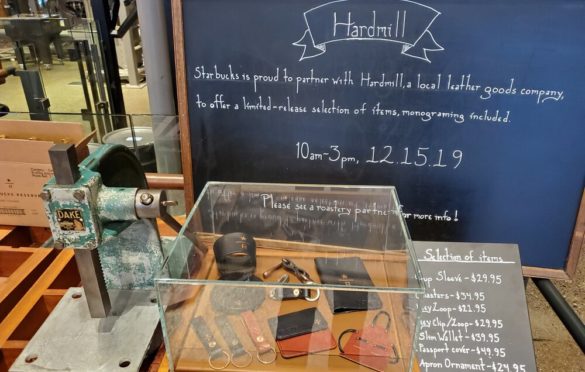 Hardmill
Starbucks is proud to partner with Hardmill, a local leather goods company,
to offer a limited-release selection of items, monograming included.
10am-3pm, 12.15.19
Please see a roastery partner for more info!
DAKE
Selection of items
Sleeve - $29.95
- $34.95
/Loop - $24.95
Clip/Loop - $29.95
Slim Wallet - $39.95
Passport cover - $49.95
Apron Ornament - $24.95